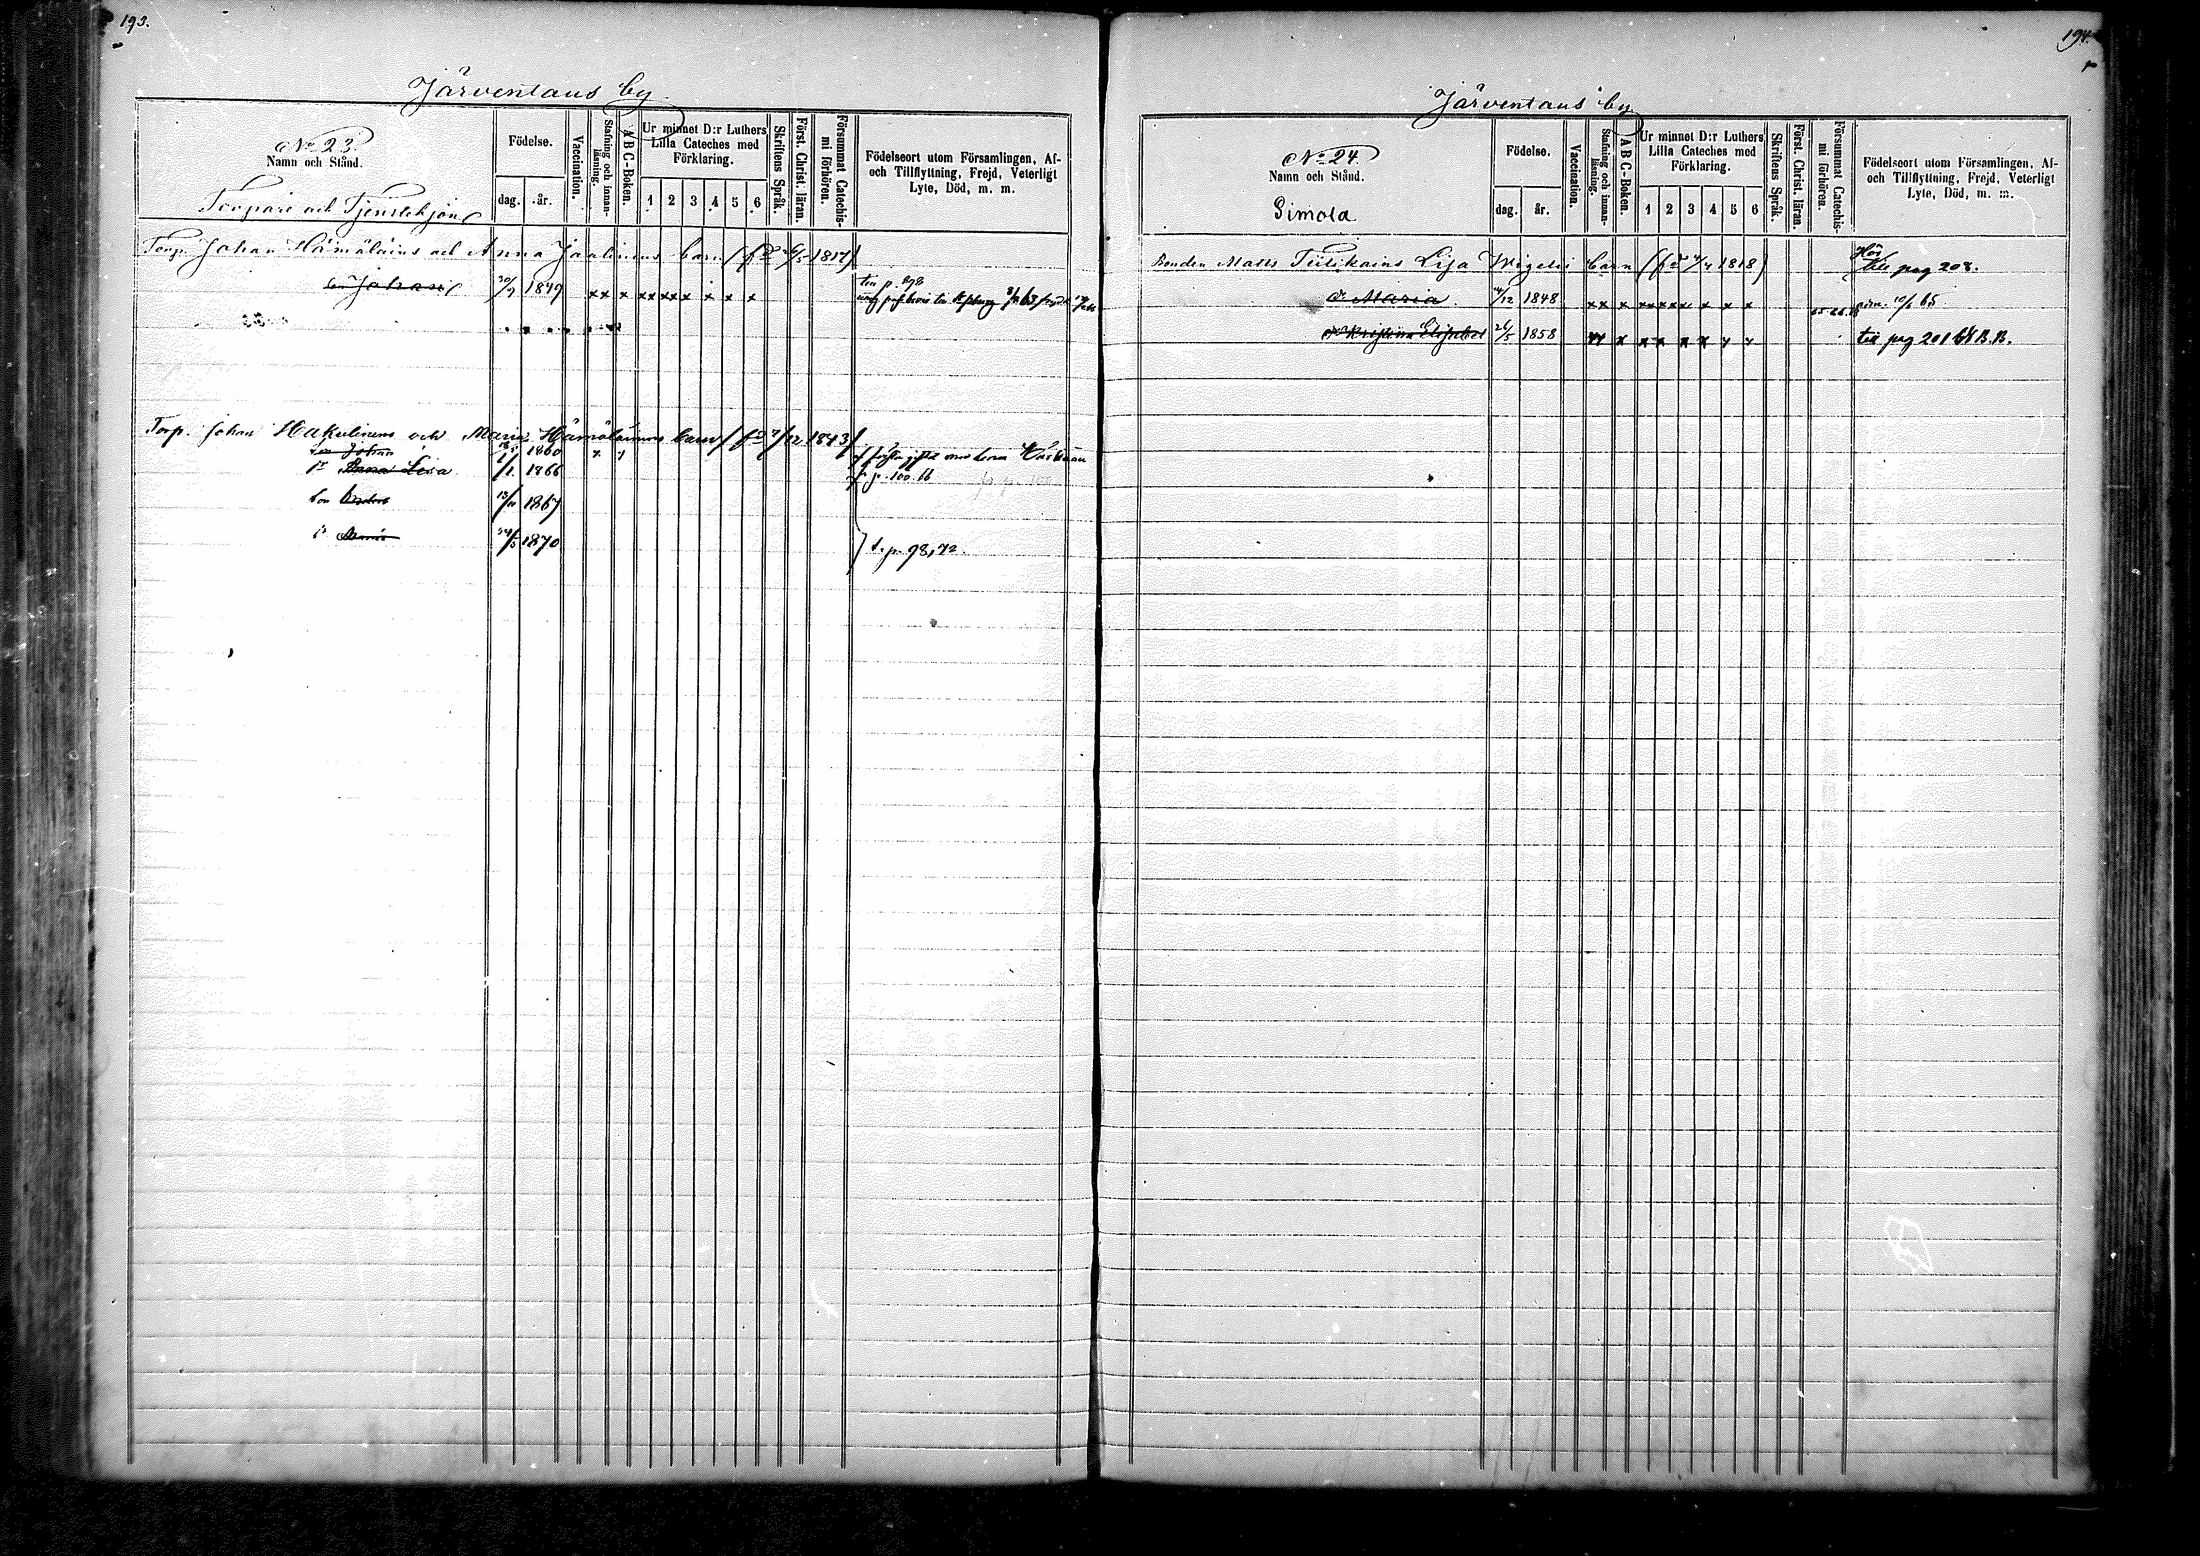 193.
Järventaus by
No 23.
Namn och Stånd.
Torpare och Tjenstehjon
Födelse.
dag. år.
Vaccination.
Stafning och innanläsning.
A B C-Boken.
Ur minnet D:r Luthers Lilla Cateches med Förklaring.
1 2 3 4 5 6
Skriftens Språk.
Först. Christ. läran.
Försummat Catechismi förhören.
Födelseort utom Församlingen, Af- och Tillflyttning, Frejd, Veterligt Lyte, Död, m. m.
Torp. Johan Hämäläins och Anna Jäälinens barn (fd 6/5 1817)
son Johan 20/9 1849 x x x x x x x x x x
Torp. Johan Hakulinens och Maria Hämäläinens barn (fd 7/12 1843)
son Johan 1860 x x
dr Anna Lisa 1/1 1866 p. 100.
son Anders 13/11 1867
dr Maria 24/5 1870 t. p. 98, 72.
194.
Järventaus by
No 24.
Namn och Stånd.
Simola
Födelse.
dag. år.
Vaccination.
Stafning och innanläsning.
A B C-Boken.
Ur minnet D:r Luthers Lilla Cateches med Förklaring.
1 2 3 4 5 6
Skriftens Språk.
Först. Christ. läran.
Försummat Catechismi förhören.
Födelseort utom Församlingen, Af- och Tillflyttning, Frejd, Veterligt Lyte, Död, m. m.
Bonden Matts Tiilikains Lisa Wigelii barn (fd 4/4 1818) till pag 208.
dr Maria 14/12 1848 x x x x x x x x x 10/6 65
dr Kristina Elisabet 26/5 1858 x x x x x x x x till pag 201